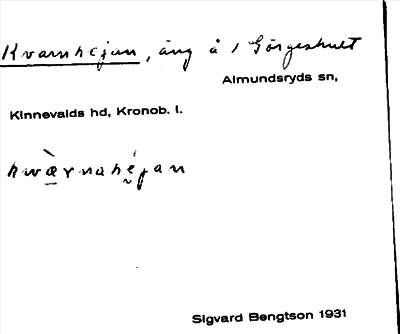 Kvarnhejan, äng å 1 Görgeshult
Almundsryds sn,
Kinnevalds hd, Kronob. l.
kwæ̀rnahéjan
Sigvard Bengtson 1931